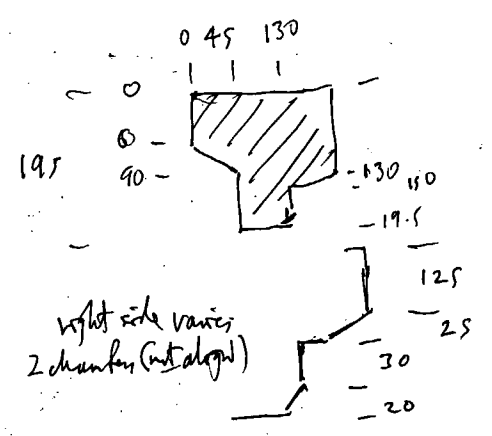 0 45 130
0
0
195
90
130 150
195
125
25
right side varies
2 chamfers (not align)
30
20